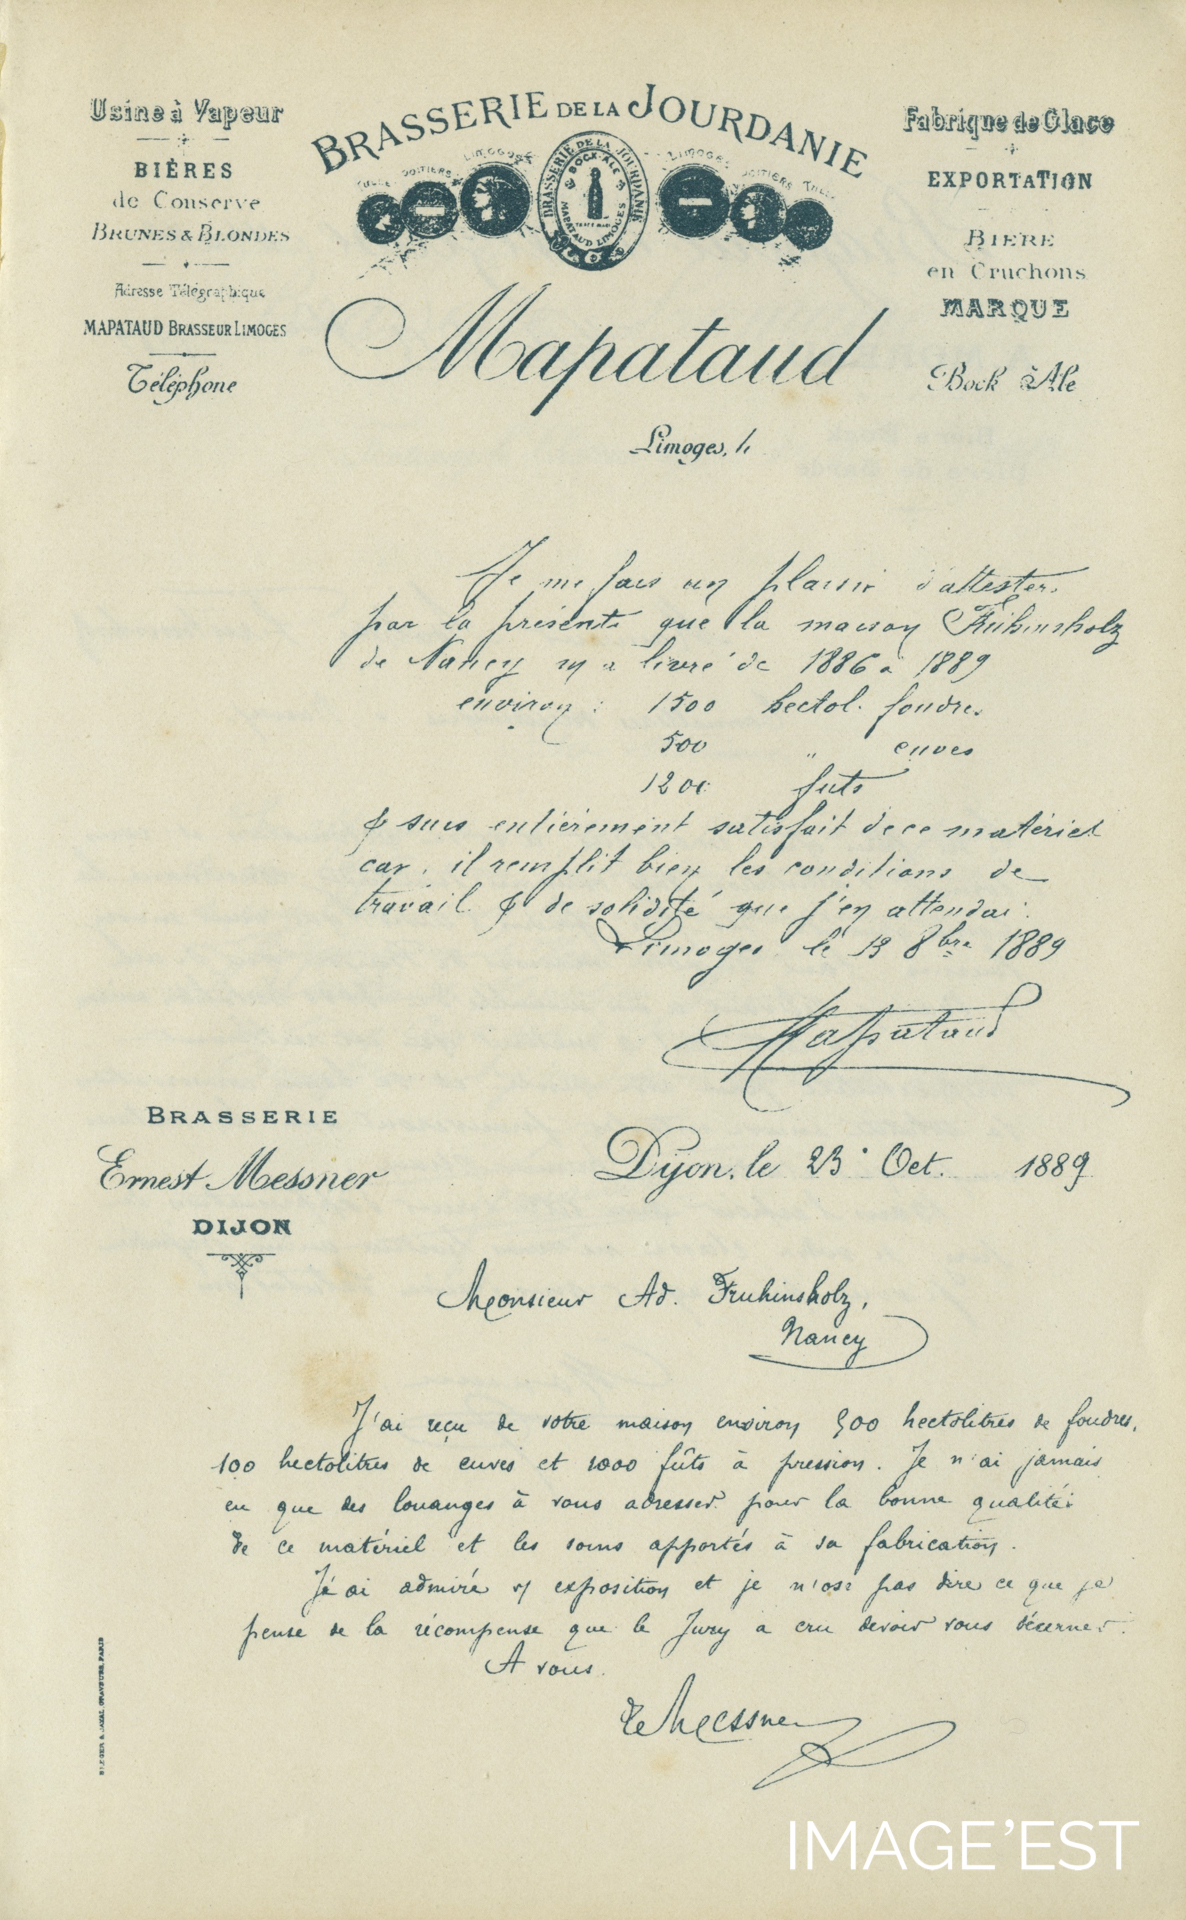 Usine à Vapeur
BIÈRES
de Conserve
BRUNES & BLONDES
Adresse Télégraphique
MAPATAUD BRASSEUR LIMOGES
Téléphone
BRASSERIE DE LA JOURDANIE
TULLE POITIERS LIMOGES
BRASSERIE DE LA JOURDANIE
BOCK-ALE
TRADE MARK
MAPATAUD LIMOGES
LIMOGES POITIERS TULLE
Mapataud
Fabrique de Glace
EXPORTATION
BIERE
en Cruchons
MARQUE
Bock Ale
Limoges, l
Je me fais un plaisir d'attester
par la présente que la maison Frühinsholz
de Nancy m'a livré de 1886 à 1889
environ : 1500 hectol. foudres
500 " cuves
1200 futs
& suis entièrement satisfait de ce matériel
car il remplit bien les conditions de
travail & de solidité que j'en attendai.
Limoges le 13 8bre 1889
Mapataud
BRASSERIE
Ernest Messner
DIJON
Dijon, le 23 Oct. 1889
Monsieur Ad. Fruhinsholz,
Nancy
J'ai reçu de votre maison environ 500 hectolitres de foudres,
100 hectolitres de cuves et 1000 fûts à pression. Je n'ai jamais
eu que des louanges à vous adresser pour la bonne qualité
de ce matériel et les soins apportés à sa fabrication.
J'ai admiré v/ exposition et je n'ose pas dire ce que je
pense de la récompense que le Jury a cru devoir vous décerner.
A vous.
Messner
GRAVEURS, PARIS
IMAGE'EST